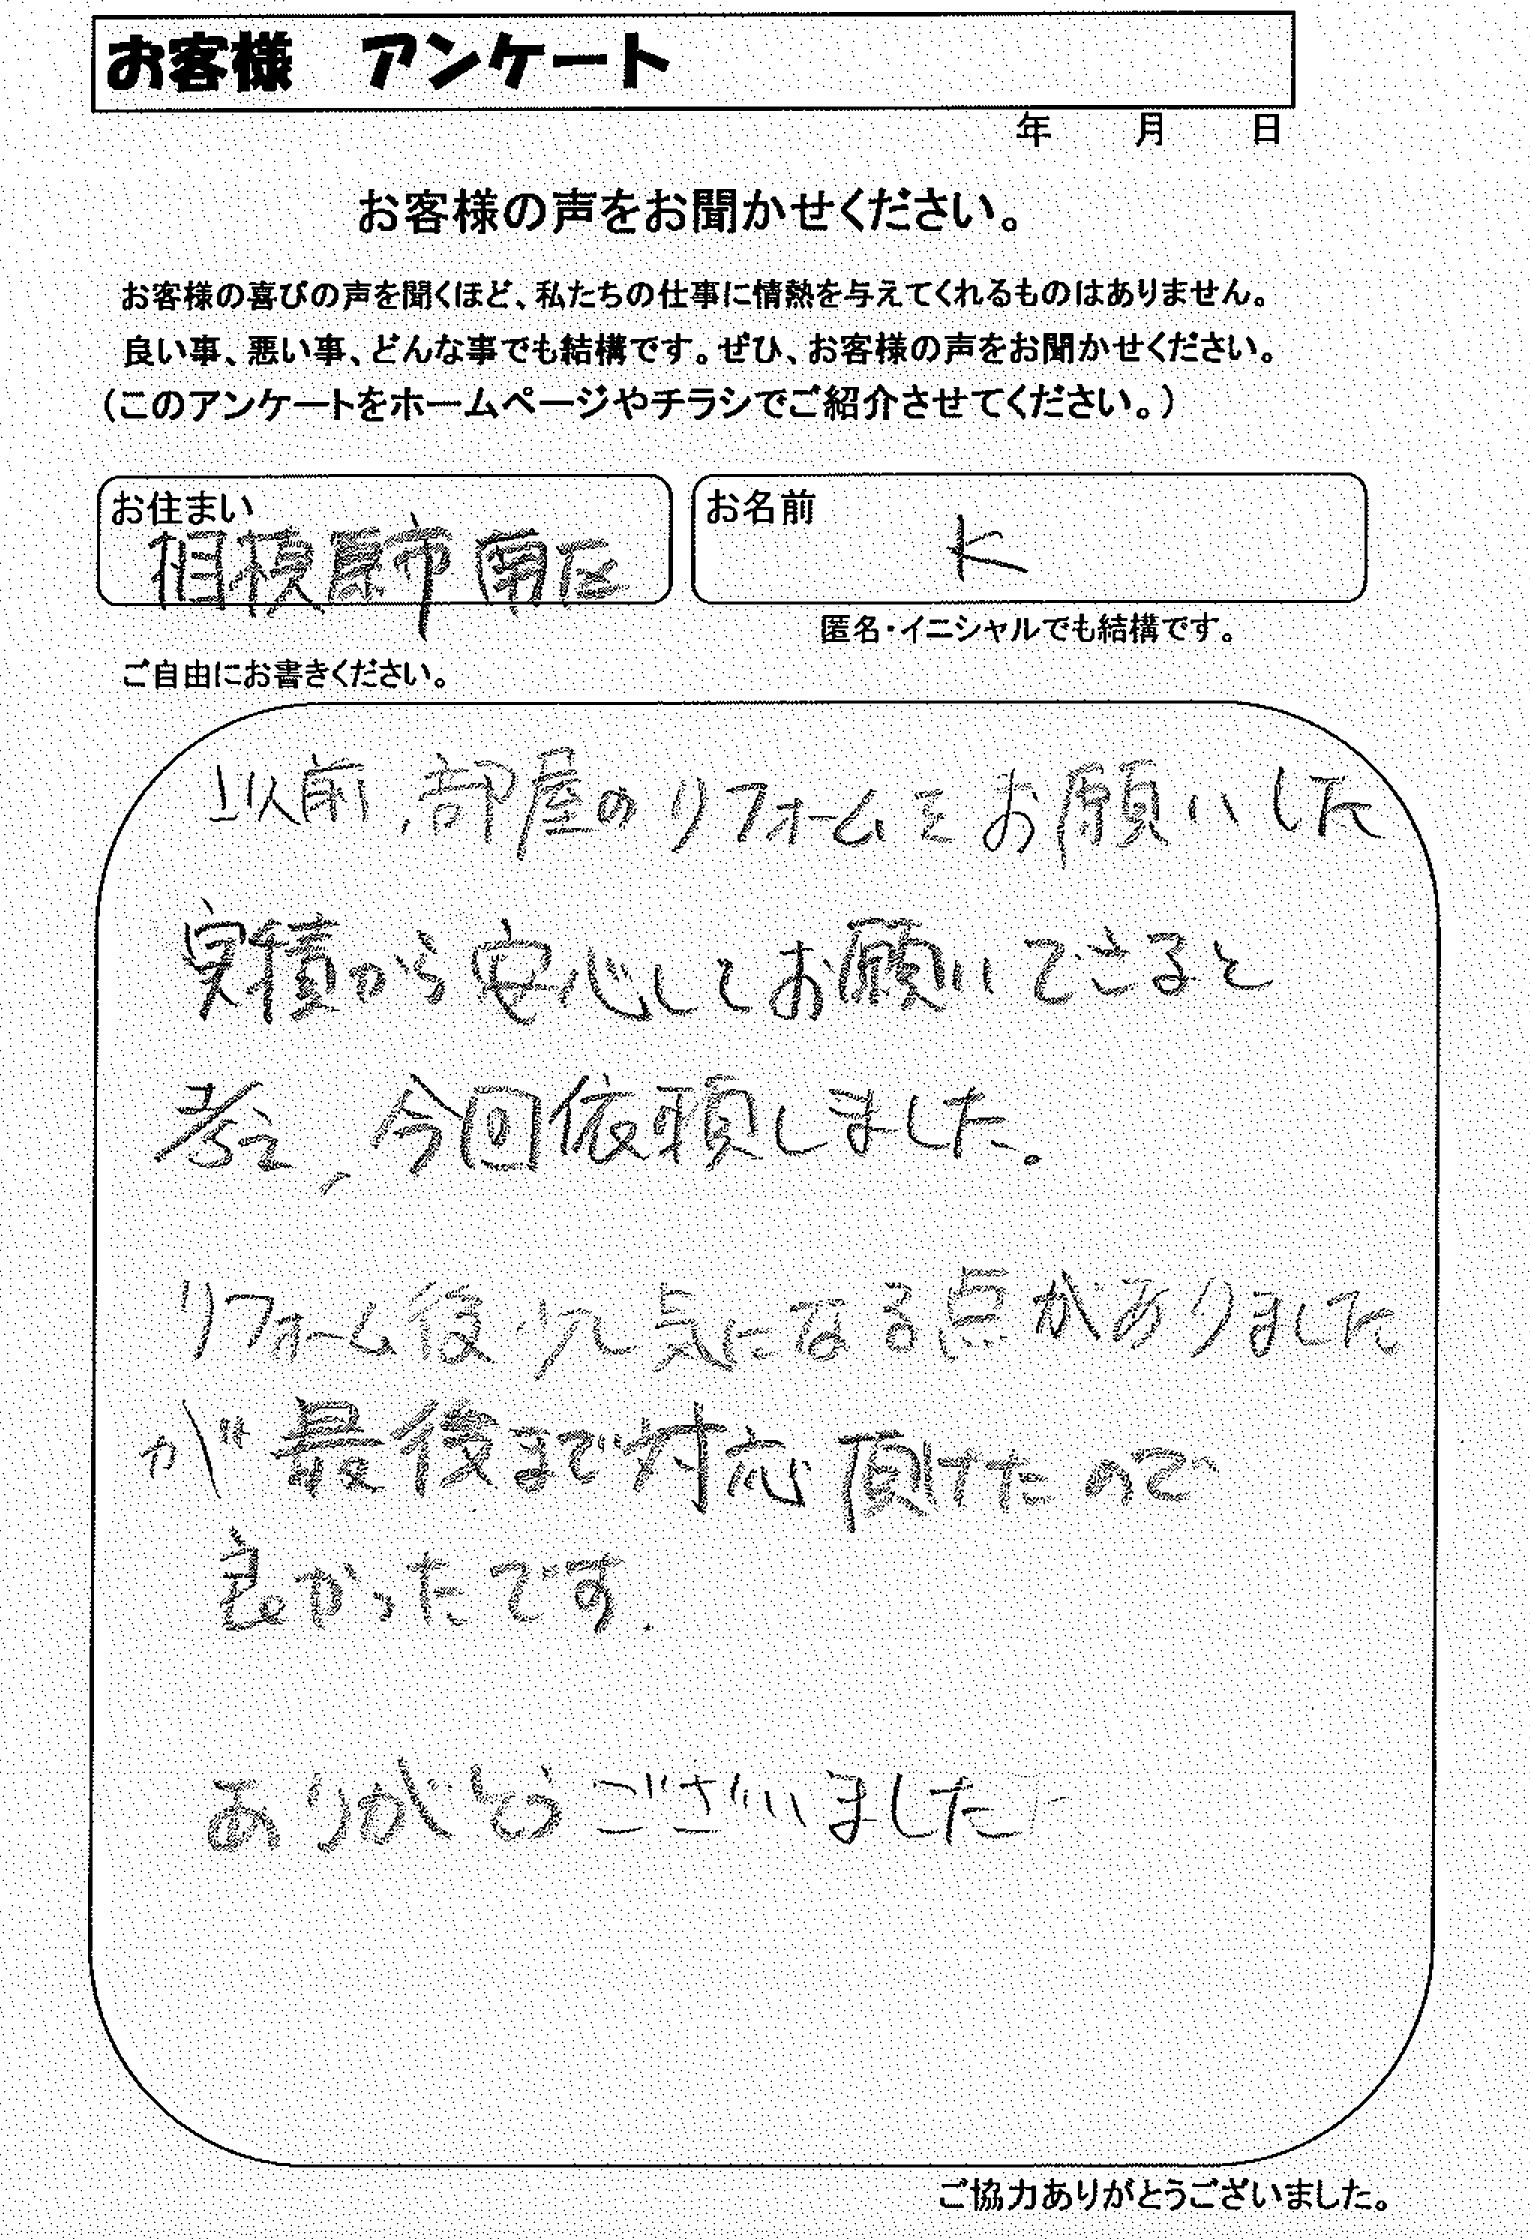 お客様　アンケート
年　月　日
お客様の声をお聞かせください。
お客様の喜びの声を聞くほど、私たちの仕事に情熱を与えてくれるものはありません。
良い事、悪い事、どんな事でも結構です。ぜひ、お客様の声をお聞かせください。
（このアンケートをホームページやチラシでご紹介させてください。）
お住まい
相模原市南区
お名前
K
匿名・イニシャルでも結構です。
ご自由にお書きください。
以前、部屋のリフォームをお願いした
実積から安心してお願いできると
考え、今回依頼しました。
リフォーム後少し気になる点がありました
が最後まで対応頂けたので
良かったです.
ありがとうございました
ご協力ありがとうございました。